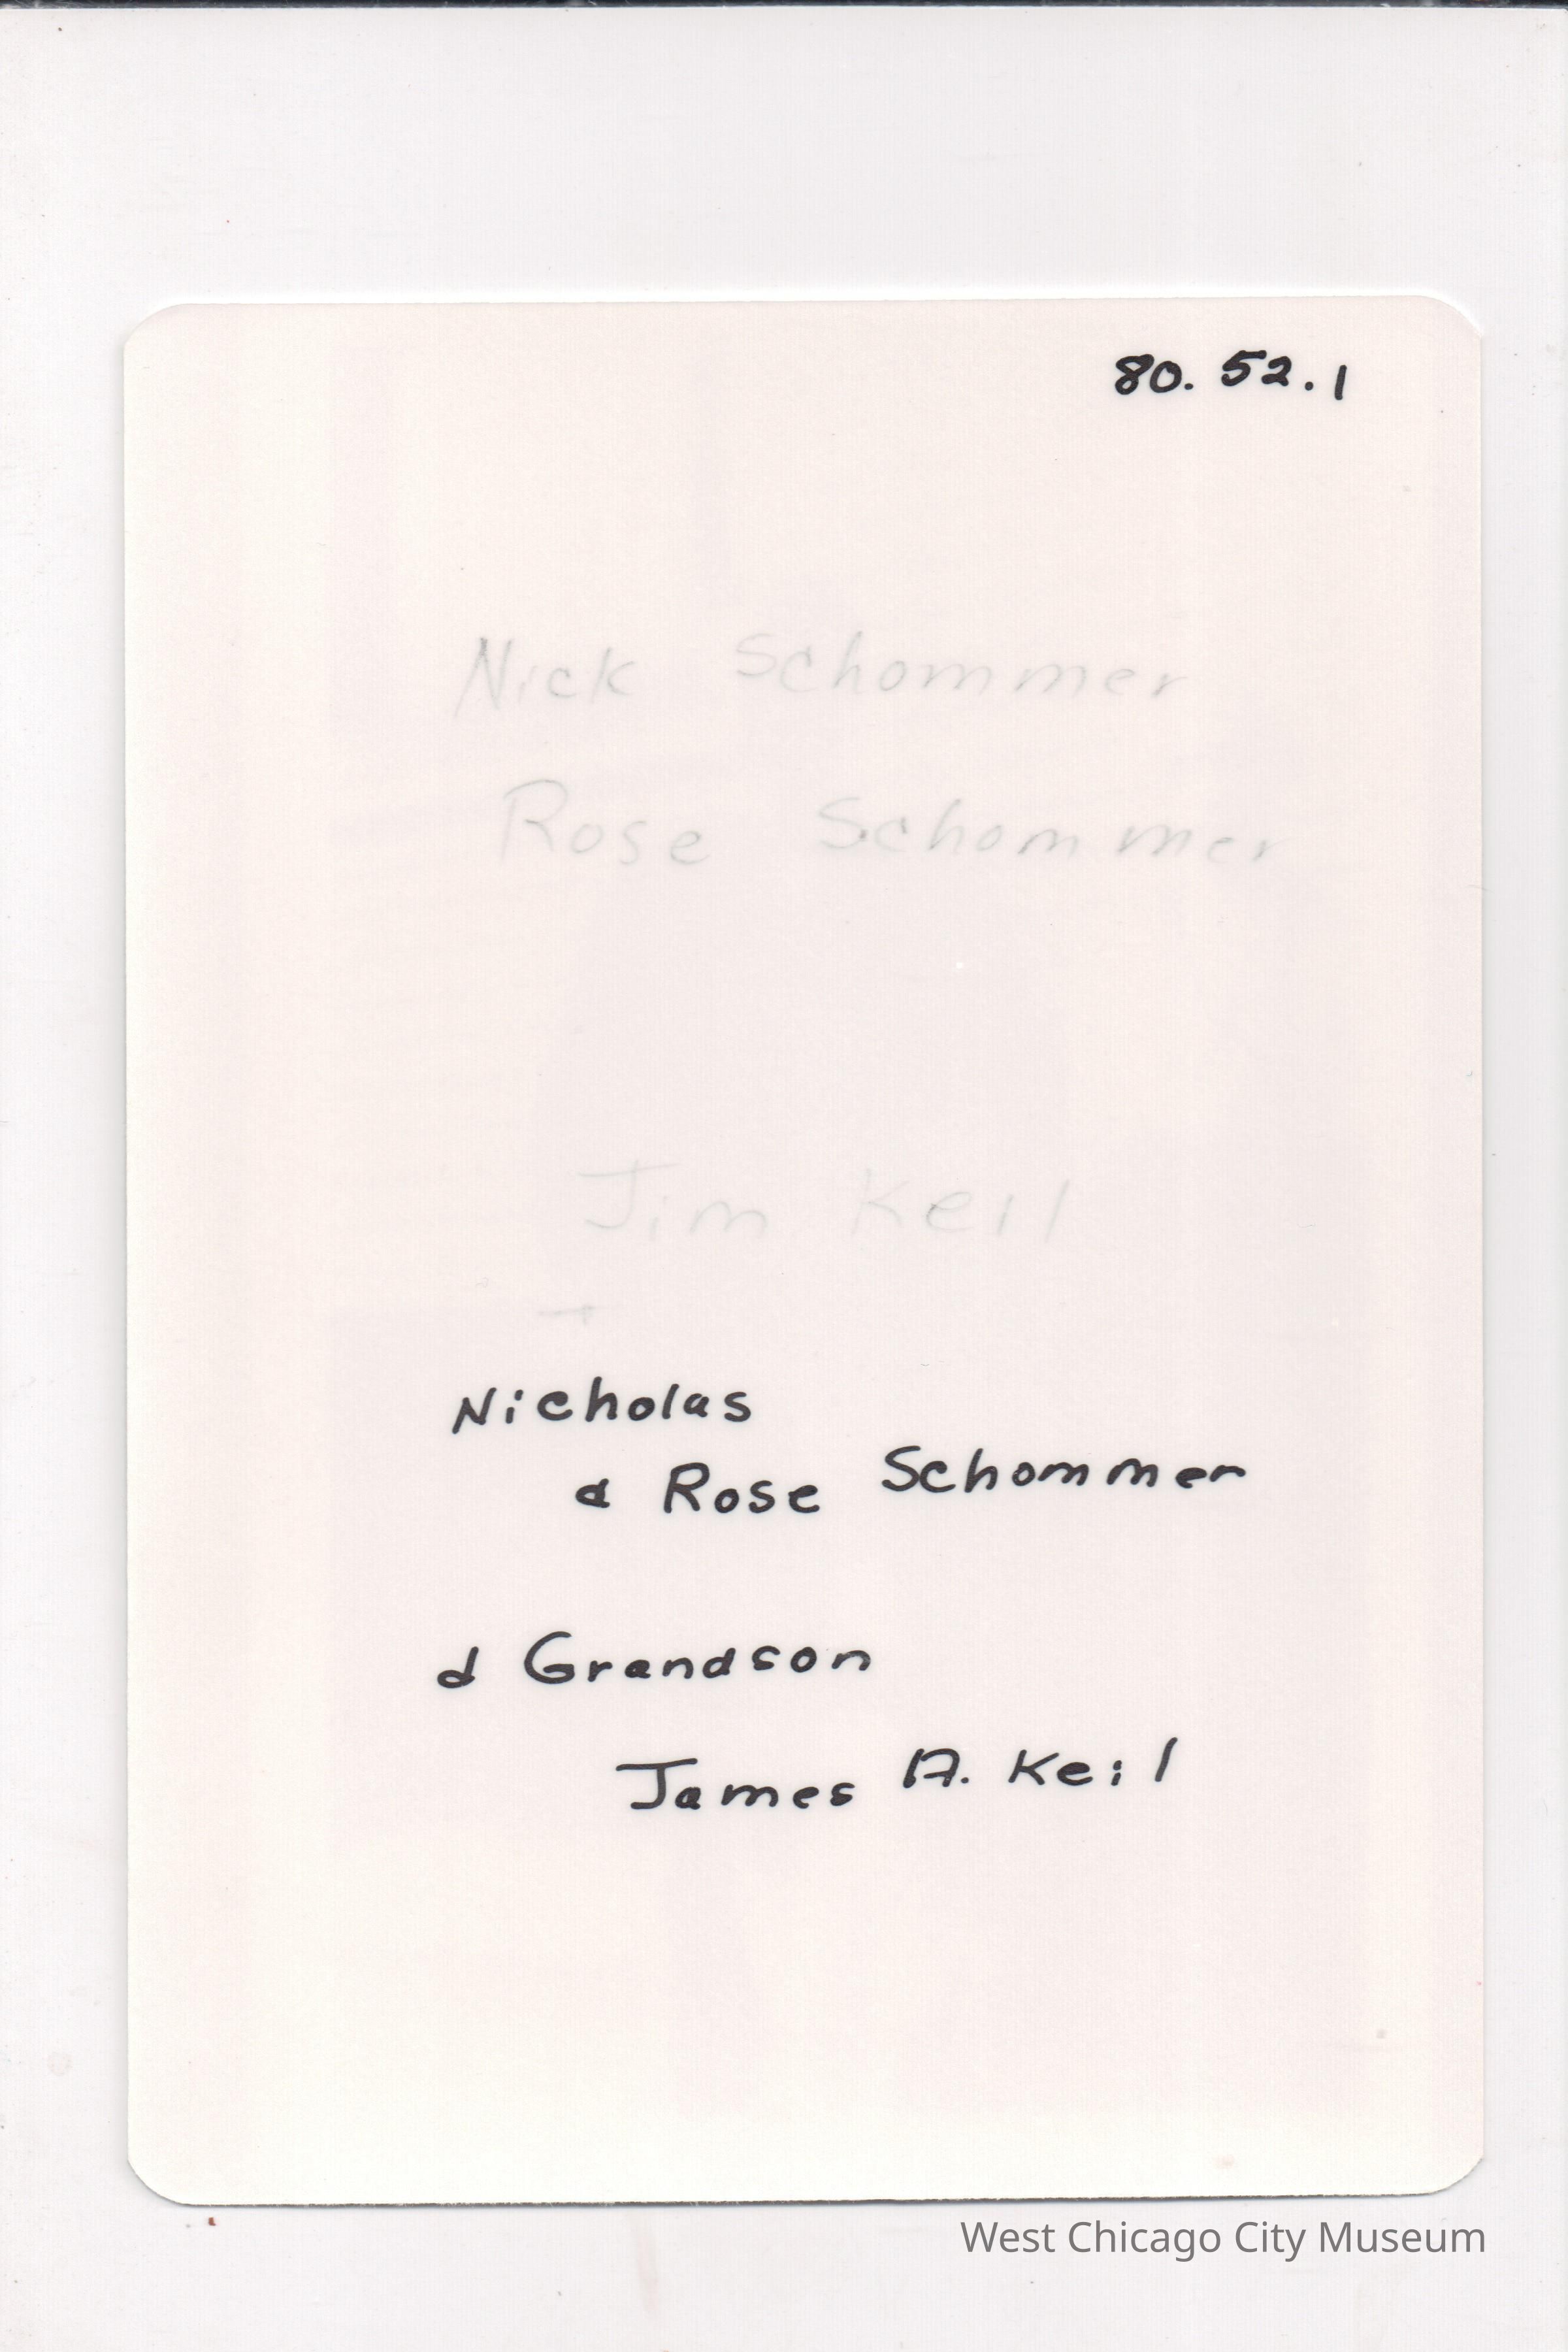 80. 52. 1
Nick Schommer
Rose Schommer
Jim Keil
Nicholas
& Rose Schommer
& Grandson
James A. Keil
West Chicago City Museum